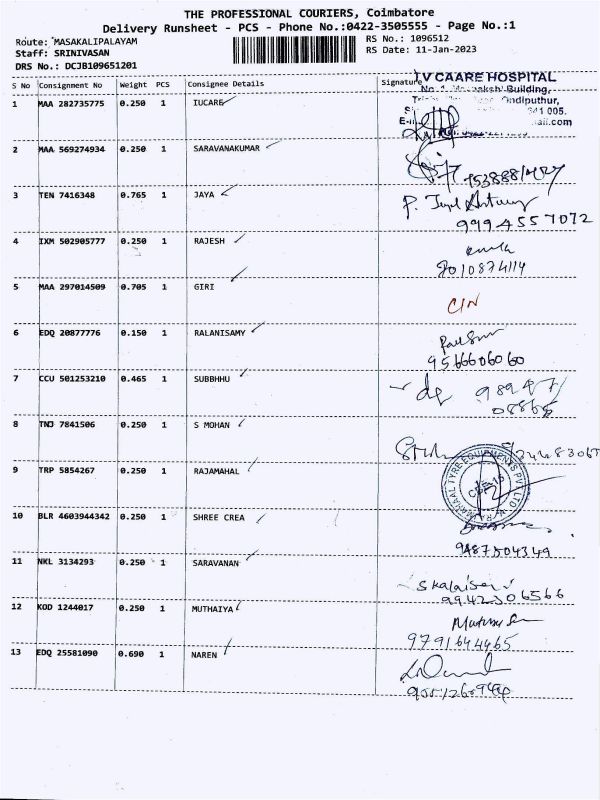 THE PROFESSIONAL COURIERS, Coimbatore
Delivery Runsheet - PCS - Phone No.:0422-3505555 - Page No.:1
Route: MASAKALIPALAYAM
Staff: SRINIVASAN
DRS No.: DCJB109651201
RS No.: 1096512
RS Date: 11-Jan-2023
S No Consignment No Weight PCS Consignee Details Signature
I V CAARE HOSPITAL
Building,
Ondiputhur,
641 005.
1 MAA 282735775 0.250 1 IUCARE
2 MAA 569274934 0.250 1 SARAVANAKUMAR
3 TEN 7416348 0.765 1 JAYA
9994557072
4 IXM 502905777 0.250 1 RAJESH
9010874114
5 MAA 297014509 0.705 1 GIRI
CIN
6 EDQ 20877776 0.150 1 RALANISAMY
9566606060
7 CCU 501253210 0.465 1 SUBBHHU
8 TNJ 7841506 0.250 1 S MOHAN
9 TRP 5854267 0.250 1 RAJAMAHAL
RAJAMAHAL TYRE EQUIPMENTS PVT LTD
CBE-15
10 BLR 4603944342 0.250 1 SHREE CREA
9487504349
11 NKL 3134293 0.250 1 SARAVANAN
9942306566
12 KOD 1244017 0.250 1 MUTHAIYA
9791644465
13 EDQ 25581090 0.690 1 NAREN